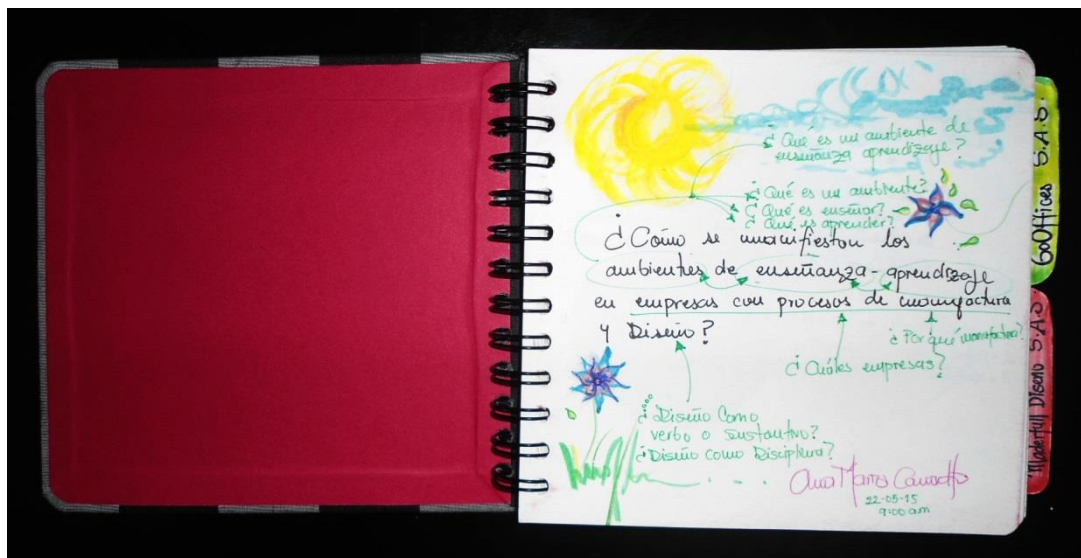 ¿Qué es un ambiente de
enseñanza aprendizaje?
¿Qué es un ambiente?
¿Qué es enseñar?
¿Qué es aprender?
¿Cómo se manifiestan los
ambientes de enseñanza-aprendizaje
en empresas con procesos de manufactura
y Diseño?
¿Por qué manufactura?
¿Cuáles empresas?
¿Diseño Como
verbo o sustantivo?
¿Diseño como Disciplina?
. . .
Ana María Camacho
22-05-15
9:00 am
GoOffices S.A.S.
Moderfull Diseño S.A.S